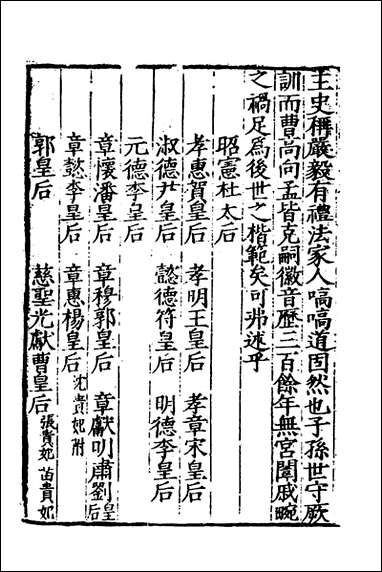 王史稱嚴毅有禮法家人嗃嗃道固然也子孫世守厥
訓而曹尚向孟皆克嗣徽音歷三百餘年無宮闈戚畹
之禍足為後世之楷範矣可弗述乎
昭憲杜太后
孝惠賀皇后 孝明王皇后 孝章宋皇后
淑德尹皇后 懿德符皇后 明德李皇后
元德李皇后
章懷潘皇后 章穆郭皇后 章獻明肅劉皇后
章懿李皇后 章惠楊皇后 沈貴妃附
郭皇后 慈聖光獻曹皇后 張貴妃 苗貴妃